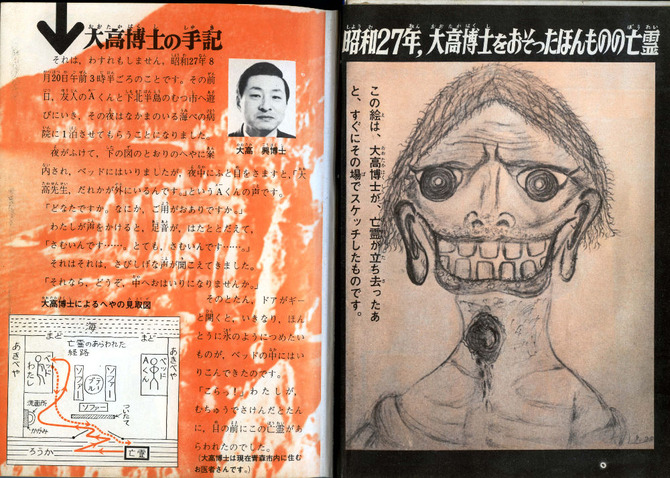 大高博士の手記
それは、わすれもしません。昭和27年8
月20日午前3時半ごろのことです。その前
日、友人のAくんと下北半島のむつ市へ遊
びにいき、その夜はなかまのいる海べの病
院に1泊させてもらうことになりました。
夜がふけて、下の図のとおりのへやに案
内され、ベッドにはいりましたが、夜中にふと目をさますと、「大
高先生、だれかが外にいるんです。」というAくんの声です。
「どなたですか。なにか、ご用がおありですか。」
わたしが声をかけると、足音が、はたととだえて、
「さむいんです……。とても、さむいんです……。」
それはそれは、さびしげな声が聞こえてきました。
「それなら、どうぞ、中へおはいりになりませんか。」
そのとたん、ドアがギー
と開くと、いきなり、ほん
とうに氷のようにつめたい
ものが、ベッドの中にはい
りこんできたのです。
「こらっ！」わたしが、
むちゅうでさけんだとたん
に、目の前にこの亡霊があ
らわれたのでした。
(大高博士は現在青森市内に住む
お医者さんです。)
大高 興博士
大高博士によるへやの見取図
海
まど
まど
亡霊のあらわれた
経路
あきべや
わたし
ベッド
ソファー
テーブル
ソファー
Aくん
ベッド
あきべや
洗面所
かがみ
ソファー
ついたて
ろうか
亡霊
昭和27年,大高博士をおそったほんものの亡霊
この絵は、大高博士が、亡霊が立ち去ったあ
と、すぐにその場でスケッチしたものです。